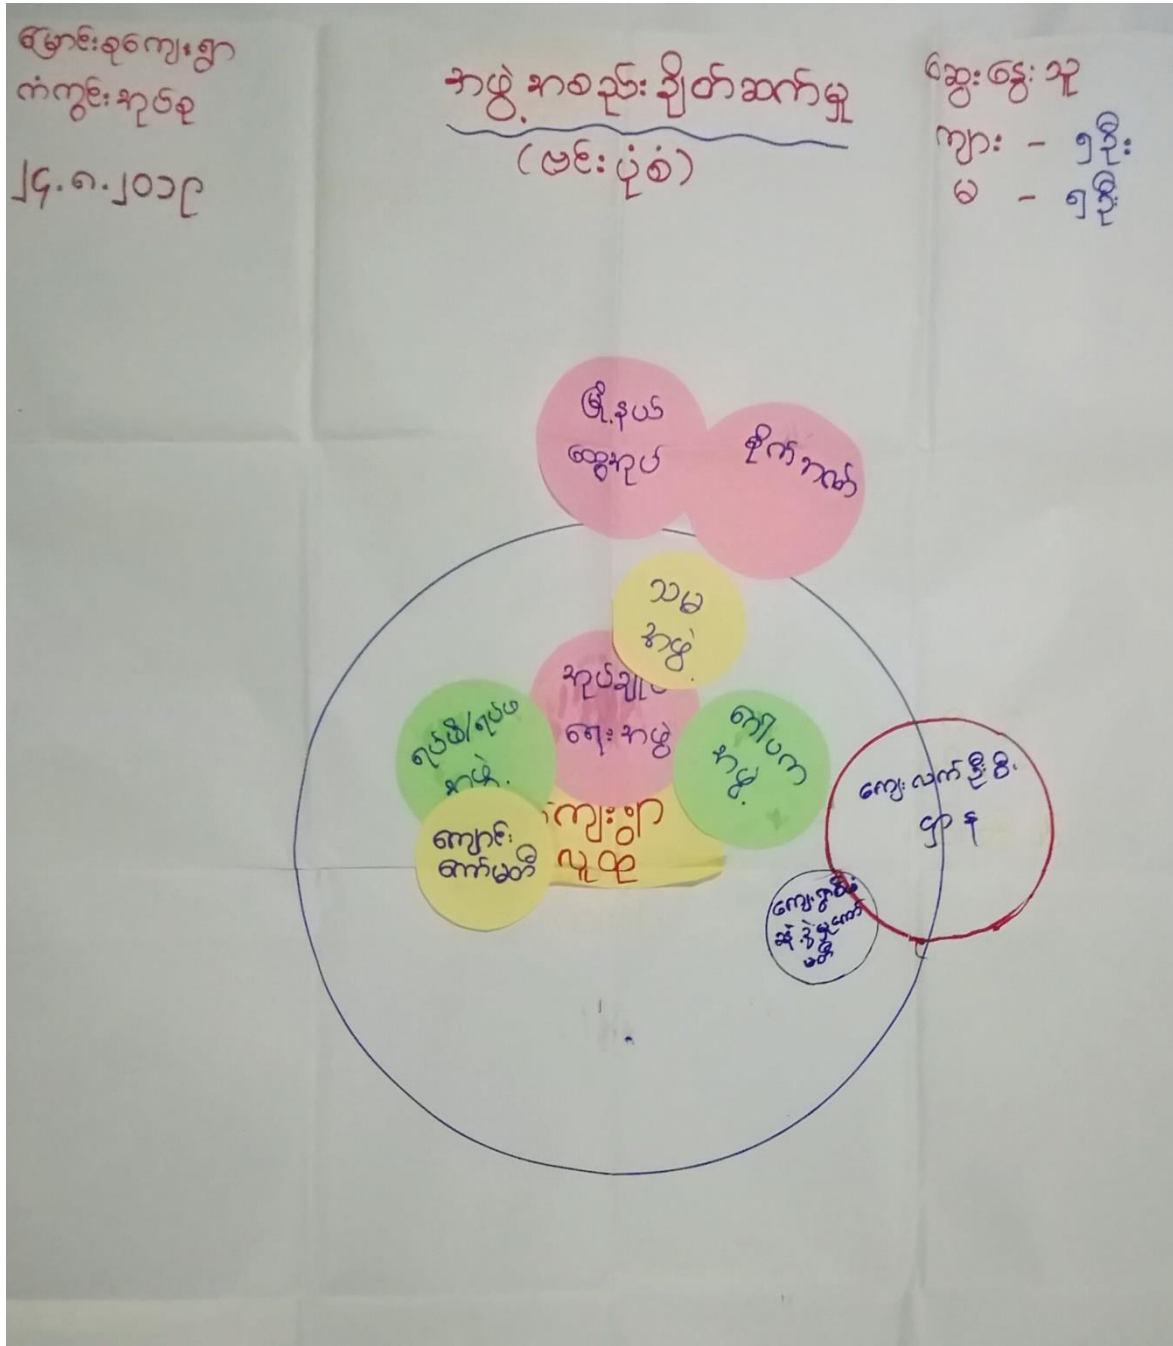 မြောင်းစုကျေးရွာ
ကံကွင်းအုပ်စု
၂၄.၈.၂၀၁၉
အဖွဲ့အစည်းချိတ်ဆက်မှု
(ဗင်းပုံစံ)
ဆွေးနွေးသူ
ကျား - ၅ဦး
မ - ၅ဦး
မြို့နယ်
ထွေအုပ်
စိုက်ဘဏ်
သမ
အဖွဲ့
အုပ်ချုပ်
ရေးအဖွဲ့
ရပ်မိ/ရပ်ဖ
အဖွဲ့
ဂေါပက
အဖွဲ့
ကျောင်း
ကော်မတီ
ကျေးရွာ
လူထု
ကျေးလက်ဦးစီး
ဌာန